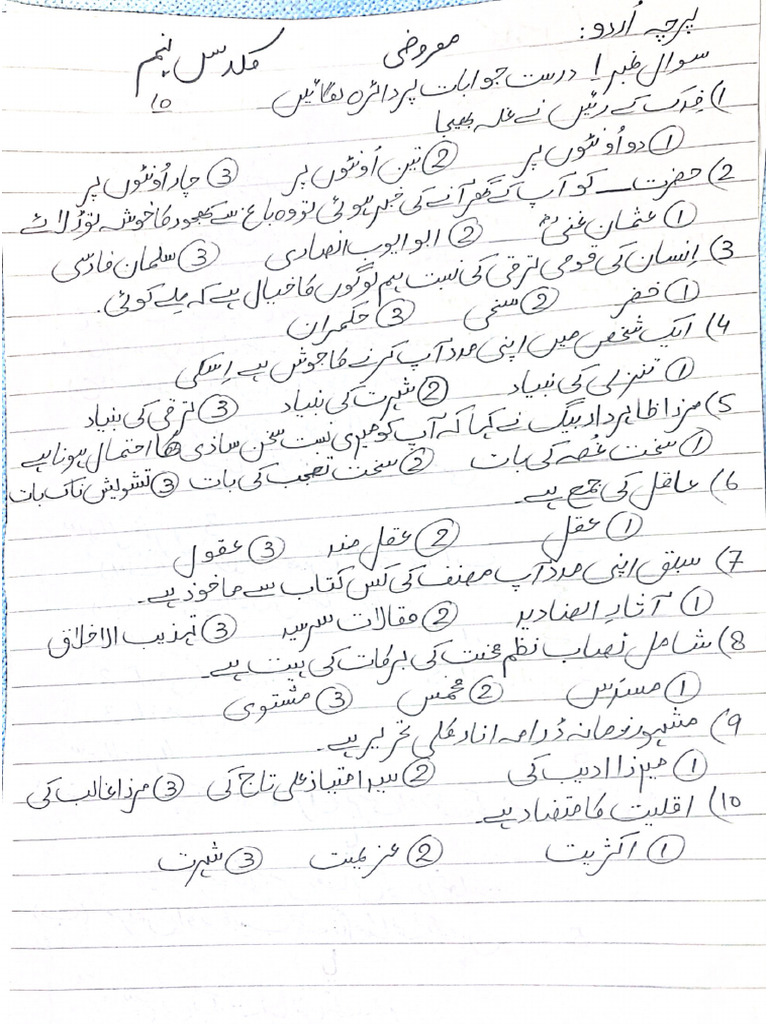 پرچہ اُردو: معروضی کلاس نہم
سوال نمبر 1 درست جوابات پر دائرہ لگائیں 10
1) فدک کے رئیس نے غلہ بھیجا
① دو اُونٹوں پر ② تین اُونٹوں پر ③ چار اُونٹوں پر
2) حضرت ــــ کو آپ کے گھر آنے کی خبر ہوئی تو وہ باغ سے کھجور کا خوشہ توڑ لائے
① عثمان غنی ② ابو ایوب انصاری ③ سلمان فارسی
3) انسان کی قومی ترقی کی نسبت ہم لوگوں کا خیال ہے کہ ملے کوئی.
① خضر ② سخی ③ حکمران
4) ایک شخص میں اپنی مدد آپ کرنے کا جوش ہے اِسکی
① تنزلی کی نبیاد ② شہرت کی نبیاد ③ ترقی کی بنیاد
5) مرزا ظاہر دار بیگ نے کہا کہ آپ کو میری نسبت سخن سازی کا احتمال ہونا ہے
① سخت غُصہ کی بات ② سخت تعجب کی بات ③ تشویش ناک بات
6) عاقل کی جمع ہے۔
① عقل ② عقل مند ③ عقول
7) سبق اپنی مدد آپ مصنف کی کس کتاب سے ماخوذ ہے۔
① آثارِ الصنادید ② مقالات سرسید ③ تہذیب الاخلاق
8) شامل نصاب نظم محنت کی برکات کی ہیت ہے۔
① مسدس ② مخمس ③ مثنوی
9) مشہور زمانہ ڈرامہ انارکلی تحریر ہے۔
① میرزا ادیب کی ② سید امتیاز علی تاج کی ③ مرزا غالب کی
10) اقلیت کا متضاد ہے۔
① اکثریت ② عزیمیت ③ شہرت